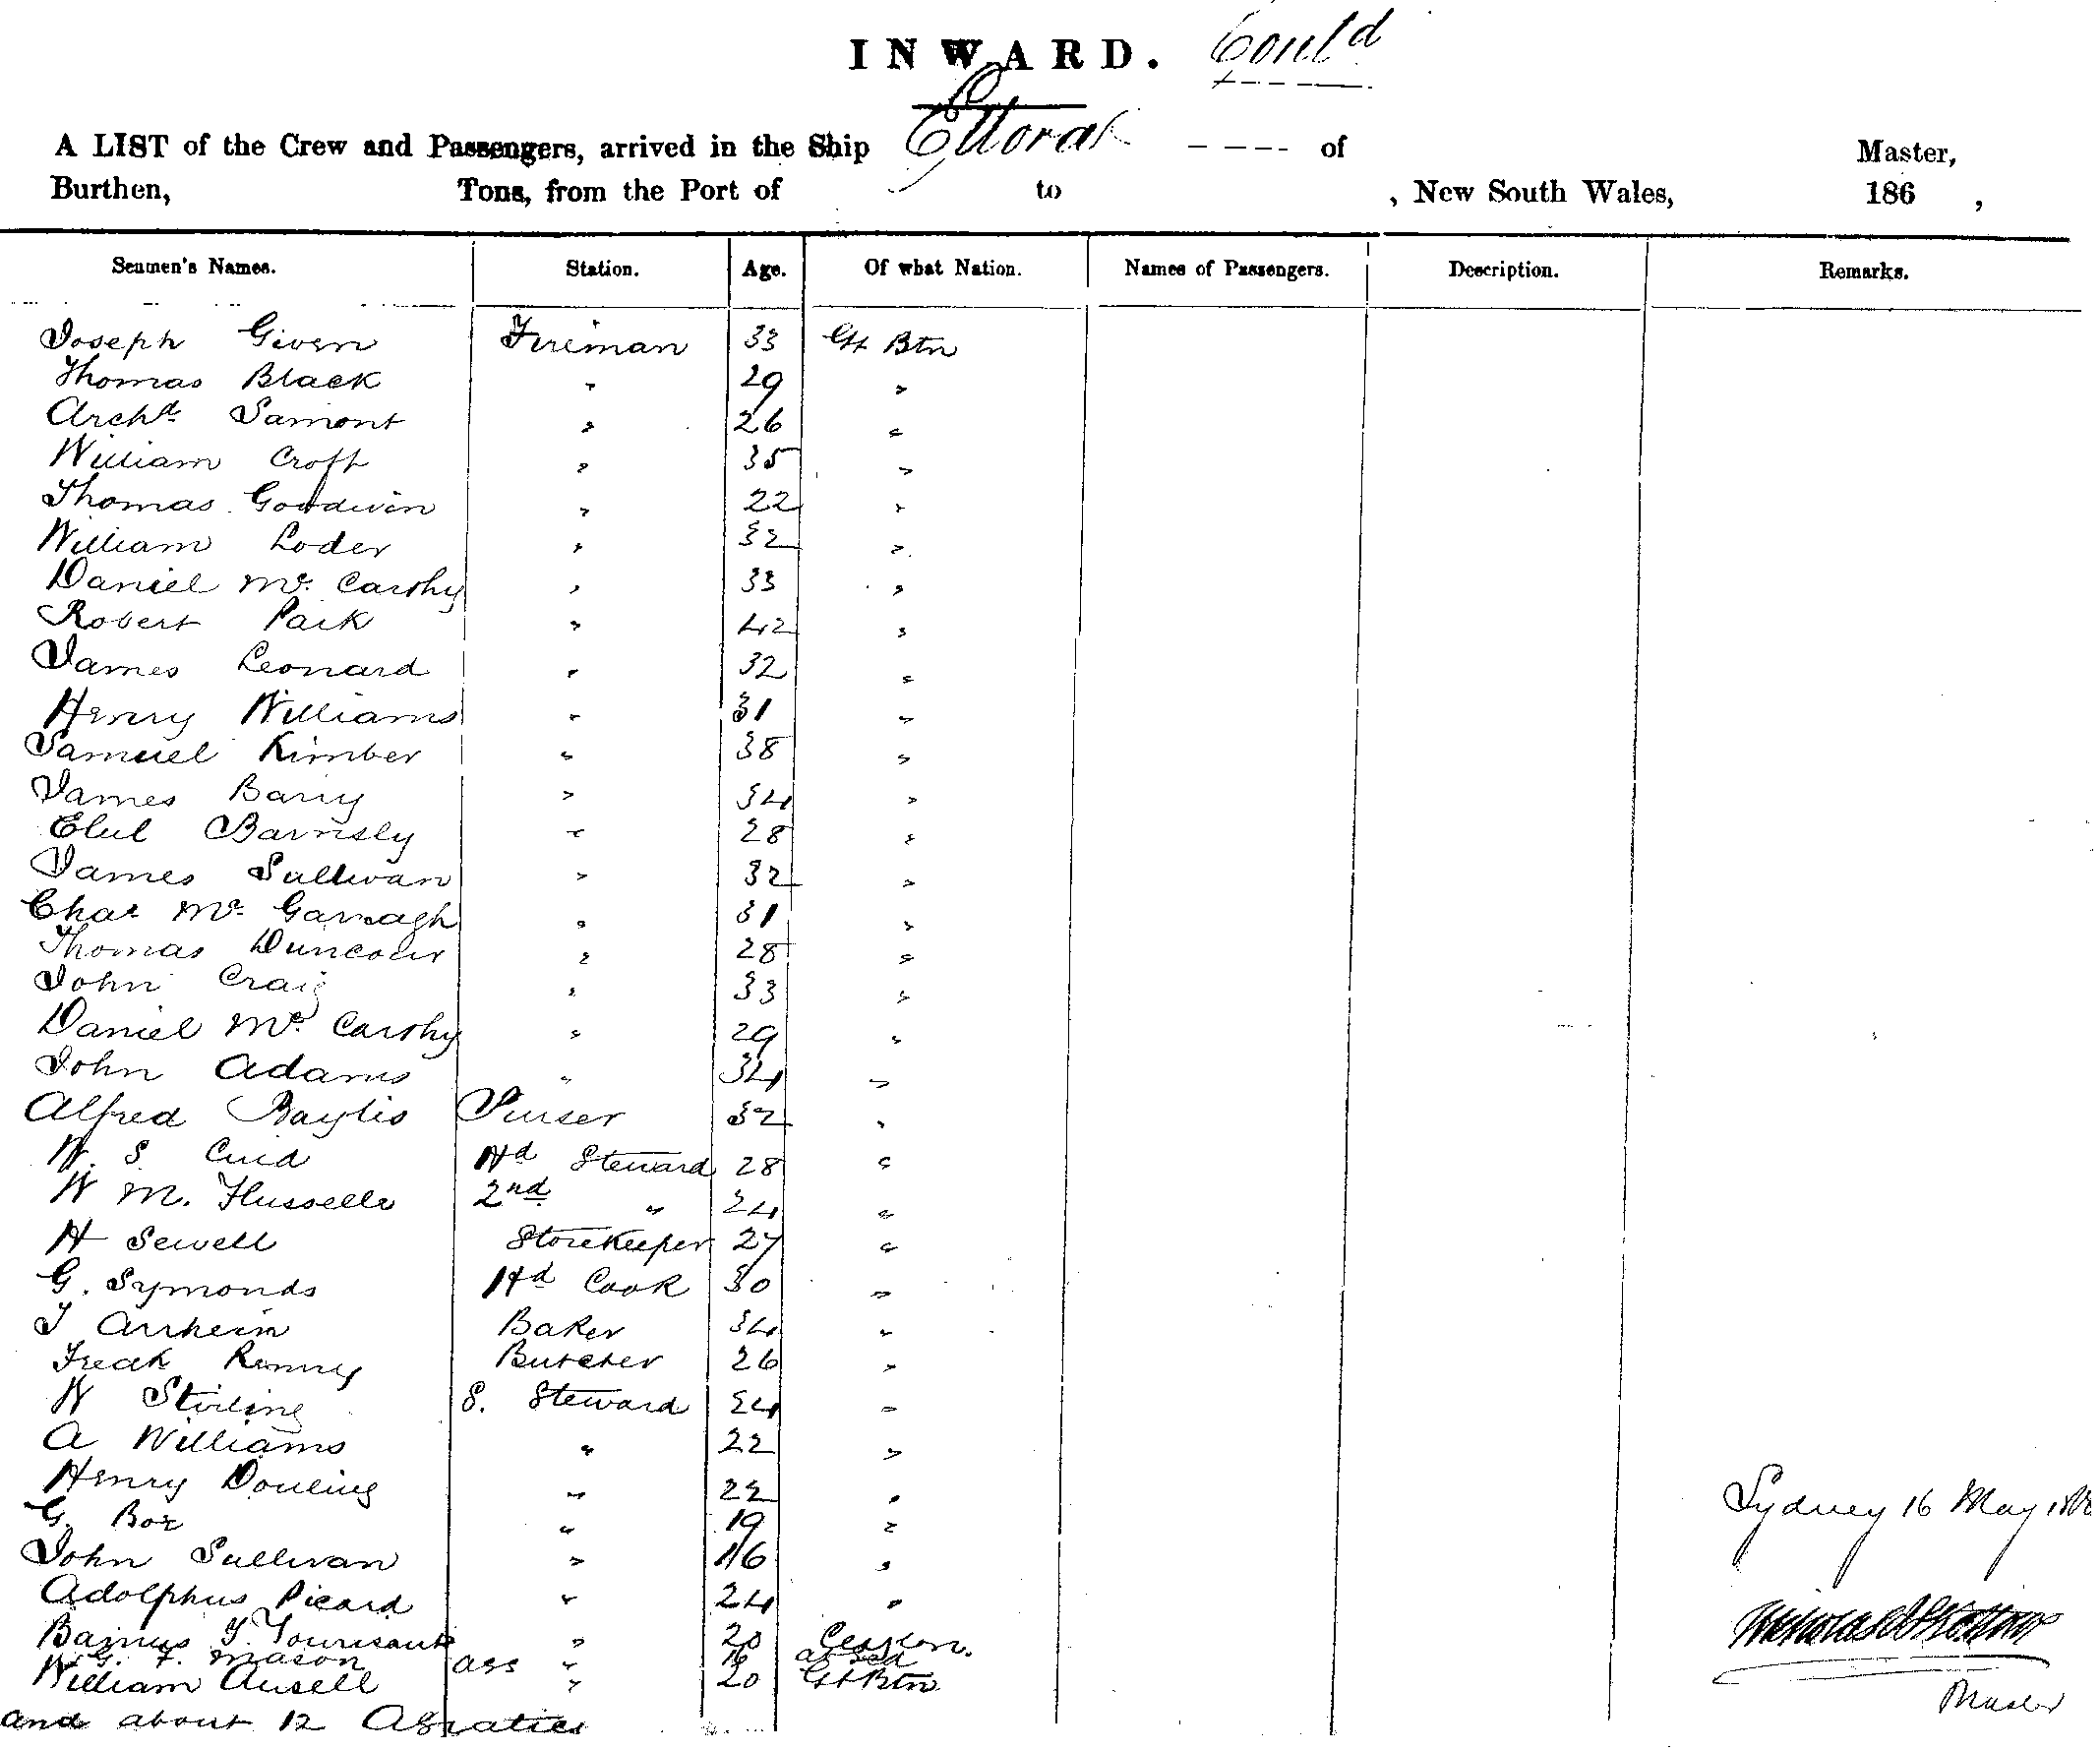 INWARD. Contd
A LIST of the Crew and Passengers, arrived in the Ship Ellora of Master,
Burthen, Tons, from the Port of to , New South Wales, 186 ,
Seamen's Names. Station. Age. Of what Nation. Names of Passengers. Description. Remarks.
Joseph Given Fireman 33 Gt Btn
Thomas Black " 29 "
Archd Lamont " 26 "
William Croft " 35 "
Thomas Goodwin " 22 "
William Loder " 32 "
Daniel Mc Carthy " 33 "
Robert Park " 42 "
James Leonard " 32 "
Henry Williams " 31 "
Samuel Kimber " 38 "
James Barry " 34 "
Barnsly " 28 "
James Sullivan " 32 "
Chas Mc Garragh " 31 "
Thomas " 28 "
John Craig " 33 "
Daniel Mc Carthy " 29 "
John Adams " 34 "
Alfred Baylis Purser 32 "
W. S. Hd Steward 28 "
W M. 2nd " 24 "
H Sewell Storekeeper 27 "
G. Symonds Hd Cook 30 "
J Arnheim Baker 34 "
Fredk Butcher 26 "
W Stirling S. Steward 24 "
A Williams " 22 "
Henry Dowling " 22 "
G. Box " 19 "
John Sullivan " 16 "
Adolphus Picard " 24 "
20 Ceylon.
G. F. Mason 16 at Sea
William Ansell ass " 20 Gt Btn
and about 12 Asiatics
Sydney 16 May
Master